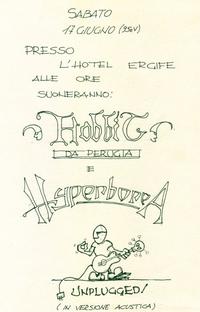 SABATO
17 GIUGNO (35eV)
PRESSO
L'HOTEL ERGIFE
ALLE ORE
SUONERANNO:
HobbiT
DA PERUGIA
E
HyperboreA
UNPLUGGED!
(IN VERSIONE ACUSTICA)